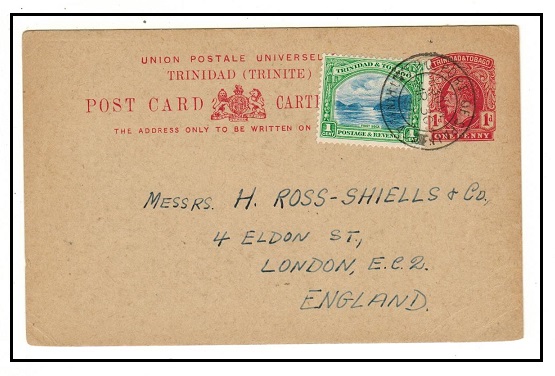 UNION POSTALE UNIVERSEL
TRINIDAD (TRINITE)
POST CARD CARTE
THE ADDRESS ONLY TO BE WRITTEN ON
TRINIDAD & TOBAGO
1 CENT
POSTAGE & REVENUE
1 CENT
TRINIDAD & TOBAGO
1d 1d
ONE PENNY
MESSRS. H. ROSS-SHIELLS & CO.,
4 ELDON ST.,
LONDON, E.C.2.
ENGLAND.